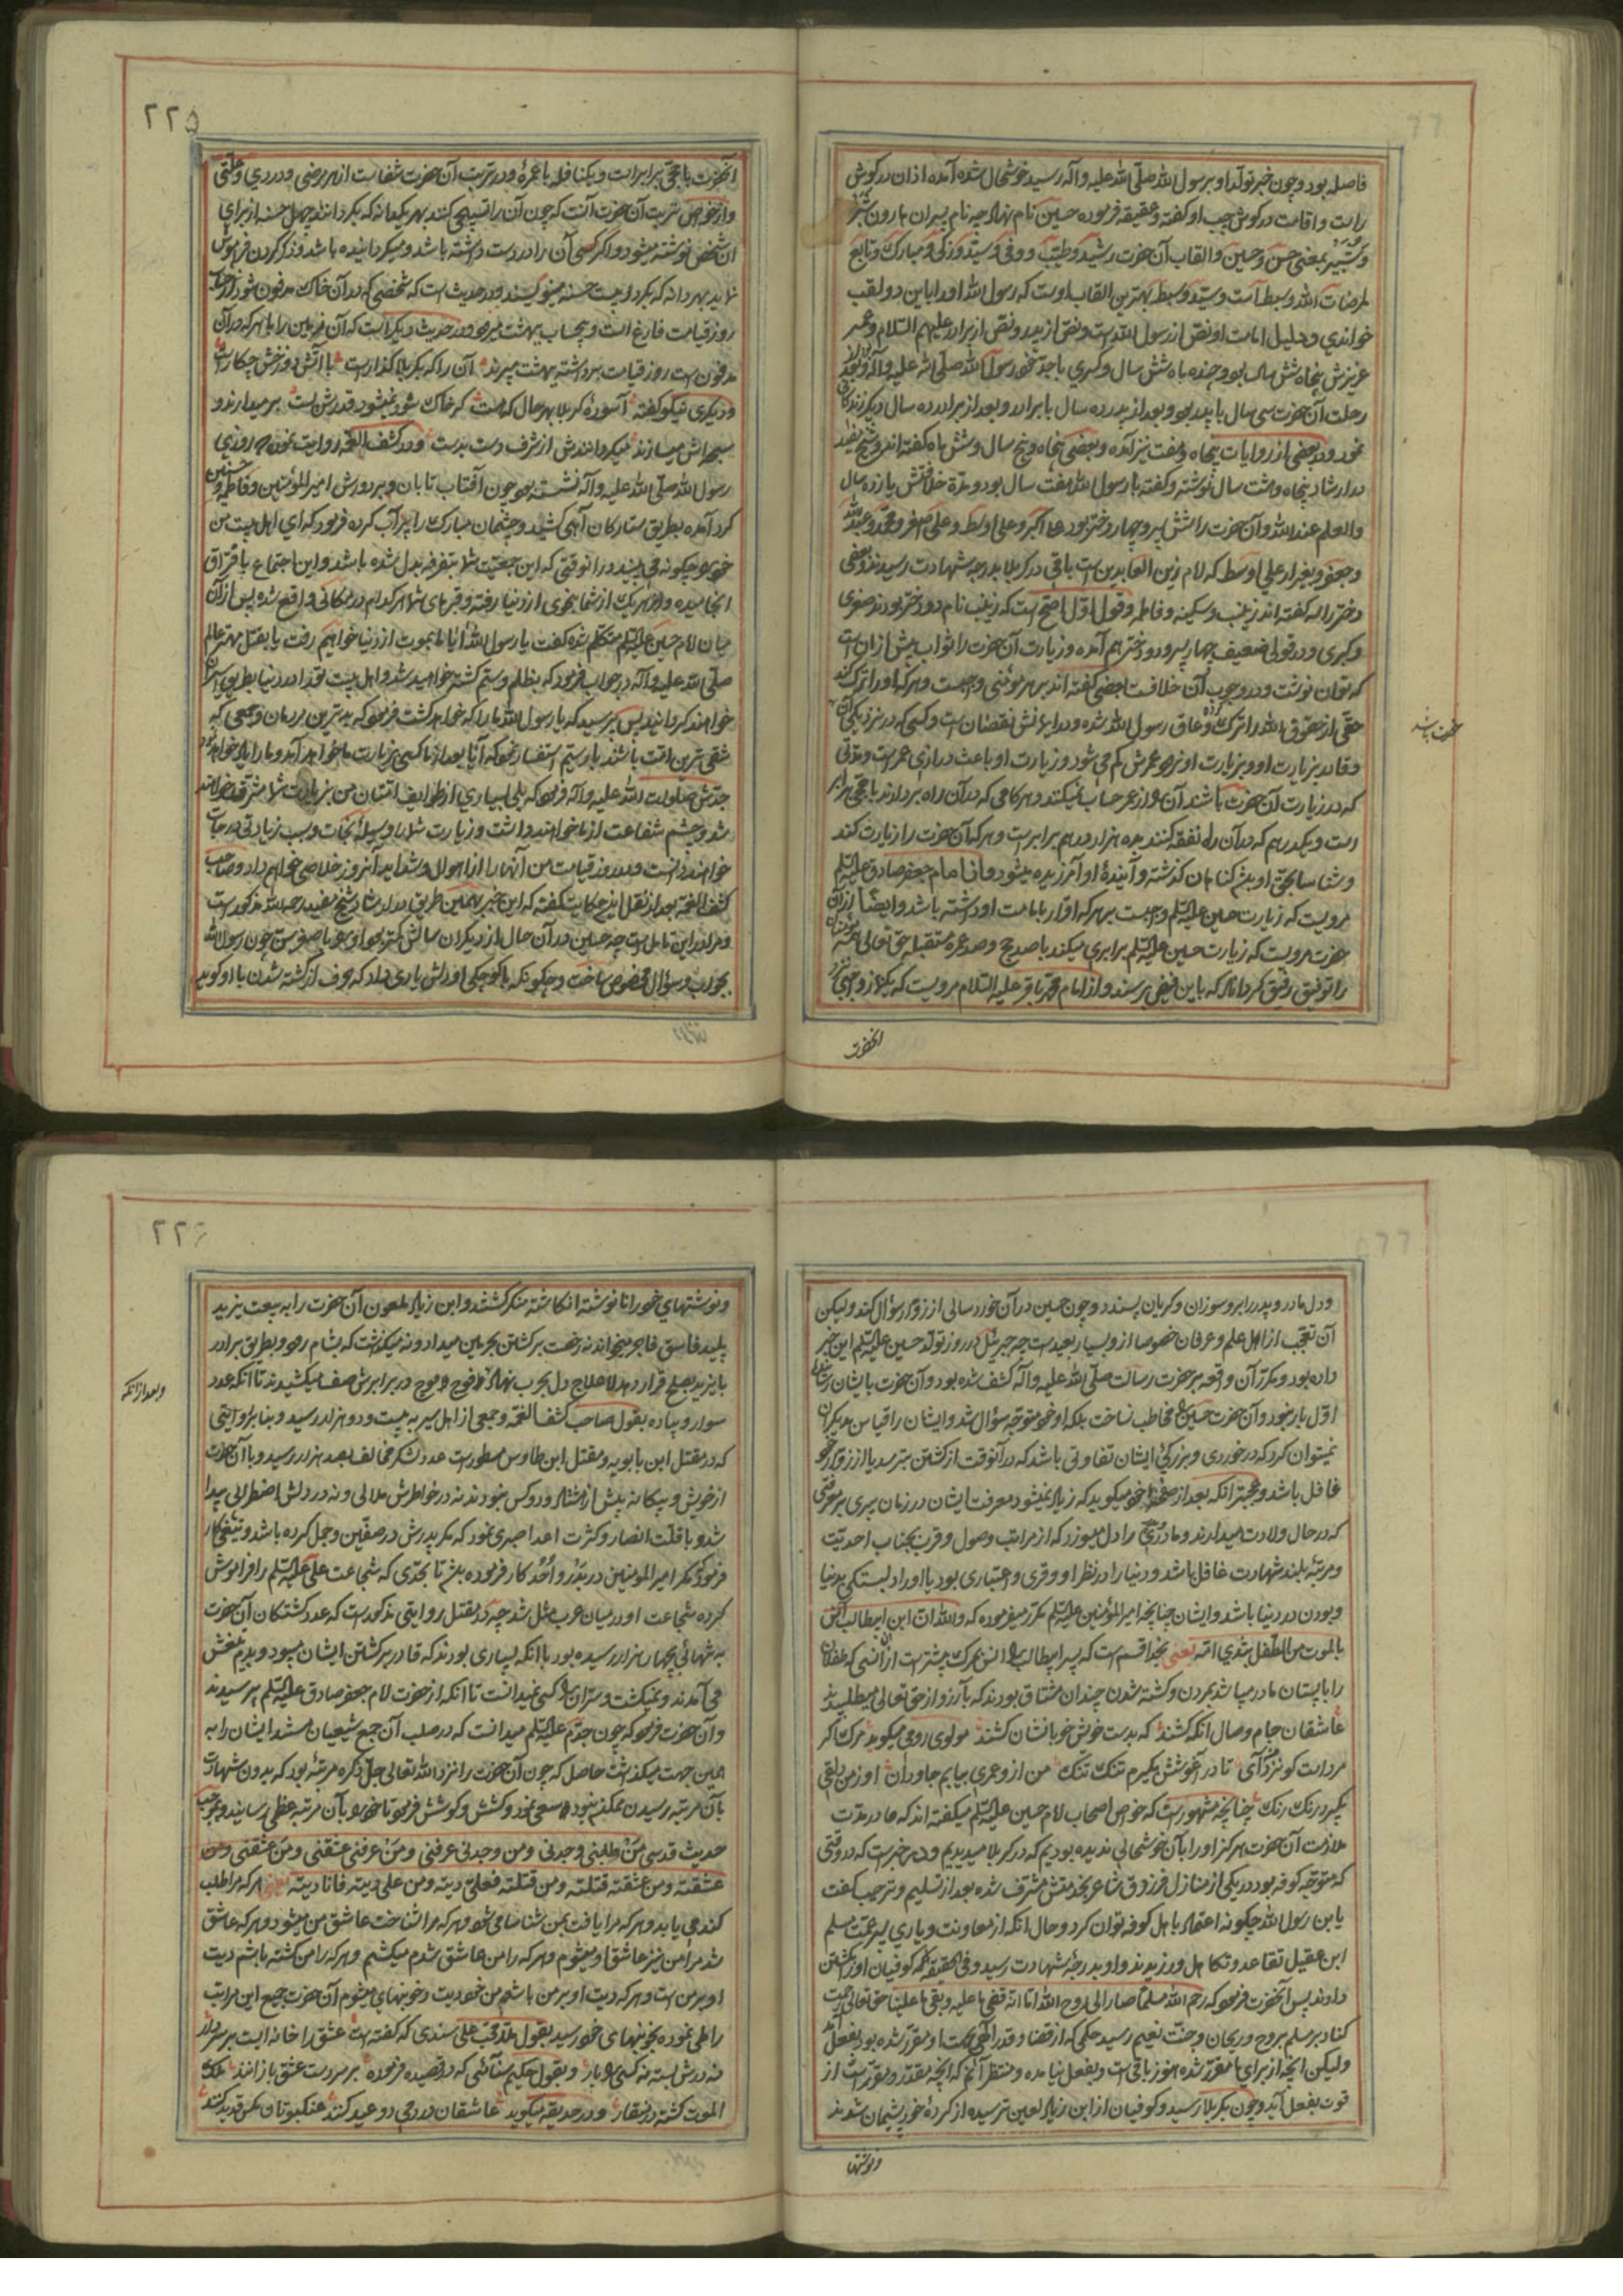 فاصله بود و چون خبر تولد او برسول الله صلّی الله علیه و آله رسید خوشحال شده آمده اذان در گوش
راست و اقامت در گوش چپ او گفته و عقیقه فرموده حسین نام نهاد چه نام پسران هارون شبّر
و شبیر بمعنی حسن و حسین و القاب آن حضرت رشید و طیّب و وفی و سیّد و زکی و مبارک و تابع
لمرضات الله و سبط است و سیّد و سبط بهترین القاب اوست که رسول الله او را باین دو لقب
خواندی و دلیل امامت او نص از رسول الله است و نص از پدر و نص از برادر علیهم السّلام و عمر
عزیزش پنجاه شش سال بود و چند ماه شش سال و کسری با جدّ خود رسول الله صلّی الله علیه و آله بود
رحلت آن حضرت سی سال با پدر بود و بعد از پدر ده سال با برادر و بعد از برادر ده سال دیگر زندگانی
نمود و در بعضی از روایات پنجاه و هفت نیز آمده و بعضی پنجاه و پنج سال و شش ماه گفته‌اند و شیخ مفید
در ارشاد پنجاه و هشت سال نوشته و گفته با رسول الله هفت سال بود و مدّة خلافتش یازده سال
والعلم عند الله و آن حضرت را شش پسر و چهار دختر بود علی اکبر و علی اوسط و علی اصغر و محمّد و عبد الله
و جعفر و بغیر از علی اوسط که امام زین العابدین است باقی در کربلا بدرجه شهادت رسیدند و بعضی
دختر را سه گفته‌اند زینب و سکینه و فاطمه و قول اوّل اصحّ است که زینب نام دو دختر بودند صغری
و کبری و در قولی ضعیف چهار پسر و دو دختر هم آمده و زیارت آن حضرت را ثواب بیش از آن است
که توان نوشت و در وجوب آن خلافست بعضی گفته‌اند بر هر مؤمنی واجبست و هر که او را ترک کند
حقّی از حقوق الله را ترک کرده و عاق رسول الله شده و در ایمانش نقصان است و کسی که در نزدیکی آن
و قادر بزیارت او و بزیارت او نرود عمرش کم می شود و زیارت او باعث درازی عمر است و مدّتی
که در زیارت آن حضرت باشند آن را از عمر حساب نمیکنند و هر گامی که در آن راه بردارند با حجّی برابر
است و یکدرهم که در آن راه نفقه کنند بده هزار درهم برابر است و هر که آن حضرت را زیارت کند
و شناسا بحقّ او باشد گناهان گذشته و آیندهٔ او آمرزیده میشود و از امام جعفر صادق علیه السّلم
مرویست که زیارت حسین علیه السّلم واجبست بر هر که اقرار بامامت او داشته باشد و ایضا از آن
حضرت مرویست که زیارت حسین علیه السّلم برابری میکند با صد حج و صد عمره متقبله حق تعالی همه مؤمنان
را توفیق رفیق گرداناد که باین فیض برسند و از امام محمّد باقر علیه السّلام مرویست که یکنماز واجبی نزد
آنحضرت
آنحضرت با حجّی برابر است و یکنافله با عمرهٔ و در تربت آن حضرت شفاست از هر مرضی و دردی و علّتی
و از خواصّ تربت آن حضرت آنست که چون آن را تسبیحی کنند بهر یکدانه که بگردانند چهل حسنه از برای
آن شخص نوشته میشود و اگر کسی آن را در دست داشته باشد و میگردانیده باشد و ذکر کردن فراموش
نماید بهر دانه که بگرداند بیست حسنه مینویسند و در حدیث است که شخصی که در آن خاک مدفون شود از حساب
روز قیامت فارغ است و بیحساب ببهشت میرود و در حدیث دیگر است که آن زمین را با هر که در آن
مدفون است روز قیامت برداشته ببهشت میبرند آن را که بکربلا گذار است با آتش دوزخش چکار است
و دیگری نیکو گفته آسودهٔ کربلا بهر حال که هست گر خاک شود نمیشود قدرش پست برمیدارند و
سبحه‌اش میسازند میگردانندش از شرف دست بدست و در کشف الغمّه روایت نموده که روزی
رسول الله صلّی الله علیه و آله نشسته بود چون آفتاب تابان و بر دورش امیر المؤمنین و فاطمه و حسنین
گرد آمده بطریق ستارگان آهی کشید و چشمان مبارک را پر آب کرده فرمود که ای اهل بیت من
خود را چگونه می بینید در آن وقتی که این جمعیّت شما بتفرقه بدل شده باشد و این اجتماع بافتراق
انجامیده و هر یک از شما بنحوی از دنیا رفته و قبرهای شما هر کدام در مکانی واقع شده پس از آن
میان امام حسین علیه السّلم متکلّم شده گفت یا رسول الله آیا ما بموت از دنیا خواهیم رفت یا بقتل مهتر عالم
صلّی الله علیه و آله در جواب فرمود که بظلم و ستم کشته خواهید شد و اهل بیت تو را در دنیا بطریق اسیران
خواهند گردانید پس پرسید که یا رسول الله ما را که خواهد کشت فرمود که بدترین مردمان و جمعی که
شقی ترین امّت باشند باز سیّم استفسار نمود که آیا بعد از ما کسی بزیارت ما خواهد آمد و ما را یاد خواهد نمود
جدّش صلوات الله علیه و آله فرمود که بلی بسیاری از طوایف امّتان من بزیارت شما مشرّف خواهند
شد و چشم شفاعت از ما خواهند داشت و زیارت شما را وسیلهٔ نجات و سبب زیادتی درجات
خواهند دانست و من در روز قیامت من آنها را از اهوال و شداید آنروز خلاصی خواهم داد و صاحب
کشف الغمّه بعد از نقل این حکایت گفته که این خبر بهمین طریق در ارشاد شیخ مفید رحمه الله مذکور است
و مرا در این تامل است چه حسین در آن حال از دیگران سالش کمتر بود او را با صغر سن چون رسول الله
بجواب و سؤال مخصوص ساخت و چگونه با کوچکی او دلش یاری داد که حرف از کشته شدن با او گوید
و دل مادر و پدر را بر او سوزان و گریان پسندد و چون حسین در آن خورد سالی از زوّار سؤال کند و لیکن
آن تعجّب از اهل علم و عرفان خصوصا از او بسیار بعید است چه جبرئیل در روز تولّد حسین علیه السّلم این خبر
داده بود و مکرّر آن واقعه بر حضرت رسالت صلّی الله علیه و آله کشف شده بود و آن حضرت بایشان رسانیده
اوّل بار نبود و آن حضرت حسین را مخاطب نساخت بلکه او خود متوجّه سؤال شد و ایشان را قیاس بدیگران
نمیتوان کرد که در خوردی و بزرگی ایشان تفاوتی باشد که در آنوقت از کشتن بترسد یا از زوّار خود
غافل باشد و عجبتر آنکه بعد از صفحهٔ خود میگوید که زیاد نمیشود معرفت ایشان در زمان پیری بر معرفتی
که در حال ولادت میدارند و مادر را دل میسوزد که از مراتب وصول و قرب بجناب احدیّت
و مرتبهٔ بلند شهادت غافل باشد و دنیا را در نظر او وقری و اعتباری بود یا او را دلبستگی بدنیا
و بودن در دنیا باشد و ایشان چنانچه امیر المؤمنین علیه السّلم مکرّر میفرموده که والله انّ ابن ابیطالب آنس
بالموت من الطّفل بثدی امّه یعنی بخدا قسم است که پسر ابیطالب را انس بمرگ بیشتر است از انسی که طفلان
را با پستان مادر میباشد بمردن و کشته شدن چندان مشتاق بودند که بآرزو از حق تعالی میطلبیدند
عاشقان جام وصال آنگه کشند که بدست خویش خوبانشان کشند مولوی رومی میگوید مرگ اگر
مرد است گو نزد من آی تا در آغوشش بگیرم تنگ تنگ من ازو عمری بیابم جاودان او ز من دلقی
بگیرد رنگ رنگ چنانچه مشهور است که خواص اصحاب امام حسین علیه السّلم میگفته‌اند که ما در مدّت
ملازمت آن حضرت هرگز او را بآن خوشحالی ندیده بودیم که در کربلا میدیدیم و در خبر است که در وقتی
که متوجّه کوفه بود در یکی از منازل فرزدق شاعر بخدمتش مشرّف شده بعد از تسلیم و ترحیب گفت
یا بن رسول الله چگونه اعتماد باهل کوفه توان کرد و حال آنکه از معاونت و یاری پسر عمّت مسلم
ابن عقیل تقاعد و تکاهل ورزیدند و او بدرجهٔ شهادت رسید و فی الحقیقه کوفیان او را بکشتن
دادند پس آنحضرت فرمود که رحم الله مسلما صار الی روح الله اما انّه قضی ما علیه و بقی ما علینا حق تعالی رحمت
کناد بر مسلم بروح و ریحان و جنّت نعیم رسید حکمی که از قضا و قدر الهی بجهت او مقرّر شده بود بفعل آمد
و لیکن آنچه از برای ما مقرّر شده هنوز باقی است و بفعل نیامده و منتظر آنم که آنچه مقدّر و مقرّر است از
قوّت بفعل آید و چون بکربلا رسید و کوفیان از ابن زیاد لعین ترسیده از کردهٔ خود پشیمان شدند
و نوشتها
و نوشتهای خود را نانوشته انگاشته منکر گشتند و ابن زیاد ملعون آن حضرت را به بیعت یزید
پلید فاسق فاجر میخواند نه رخصت برگشتن بحرمین میداد و نه میگذشت که بشام رود و بطریق برادر
با یزید بصلح قرار دهد لاعلاج دل بحرب نهاد و فوج فوج در برابرش صف میکشیدند تا آنکه عدد
و بعد از آنکه
سوار و پیاده بقول صاحب کشف الغمّه و جمعی از اهل سیر به بیست و دو هزار رسید و بنا بر روایتی
که در مقتل ابن بابویه و مقتل ابن طاوس مسطور است عدد لشکر مخالف بصد هزار رسید و با آن حضرت
از خویش و بیگانه بیش از هشتاد و دو کس نبودند نه در خاطرش ملالی و نه در دلش اضطرابی پیدا
شد و با قلّت انصار و کثرت اعدا صبری نمود که مگر پدرش در صفّین و جمل کرده باشد و تیغی کار
فرمود که مگر امیر المومنین در بدر و احد کار فرموده باشد تا بحدّی که شجاعت علی علیه السّلم را فراموش
کرده شجاعت او در میان عرب مثل شد چه در مقتل روایتی مذکور است که عدد کشتگان آن حضرت
به تنهائی بچهار هزار رسیده بود با آنکه بسیاری بودند که قادر بر کشتن ایشان میبود و بدم تیغش
می آمدند و نمیکشت و سرّ آن را کسی نمیدانست تا آنکه از حضرت امام جعفر صادق علیه السّلم پرسیدند
و آن حضرت فرمود که چون جدّم علیه السّلم میدانست که در صلب آن جمع شیعیان هستند ایشان را به
همین جهت میگذشت حاصل که چون آن حضرت را نزد الله تعالی جلّ ذکره مرتبهٔ بود که بدون شهادت
بآن مرتبه رسیدن ممکن نبود سعی نمود و کشش و کوشش فرمود تا خود را بآن مرتبه عظمی رسانید و بموجب
حدیث قدسی من طلبنی وجدنی و من وجدنی عرفنی و من عرفنی عشقنی و من عشقنی و من
عشقته و من عشقته قتلته و من قتلته فعلیّ دیته و من علی دیته فانا دیته یعنی هر که مرا طلب
کند می یابد و هر که مرا یافت بمن شناسا می شود و هر که مرا شناخت عاشق من میشود و هر که عاشق
شد مرا من نیز عاشق او میشوم و هر که را من عاشق شدم میکشم و هر که را من کشته باشم دیت
او بر من است و هر که دیت او بر من باشد من خود دیت و خونبهای میشوم آن حضرت جمیع این مراتب
را طی نموده بخونبهای خود رسید بقول ملا محب علی سندی که گفته است عشق را خانه ایست بر سر دار
نه درش بسته نه کسی را بار و بقول حکیم سنائی که در قصیده فرموده بر سر دست عشق بازانند ملک
الموت کشته در منقار و در حدیقه میگوید عاشقان در دمی دو عید کنند عنکبوتان مگس قدید کنند
۲۲۵
۲۲۶